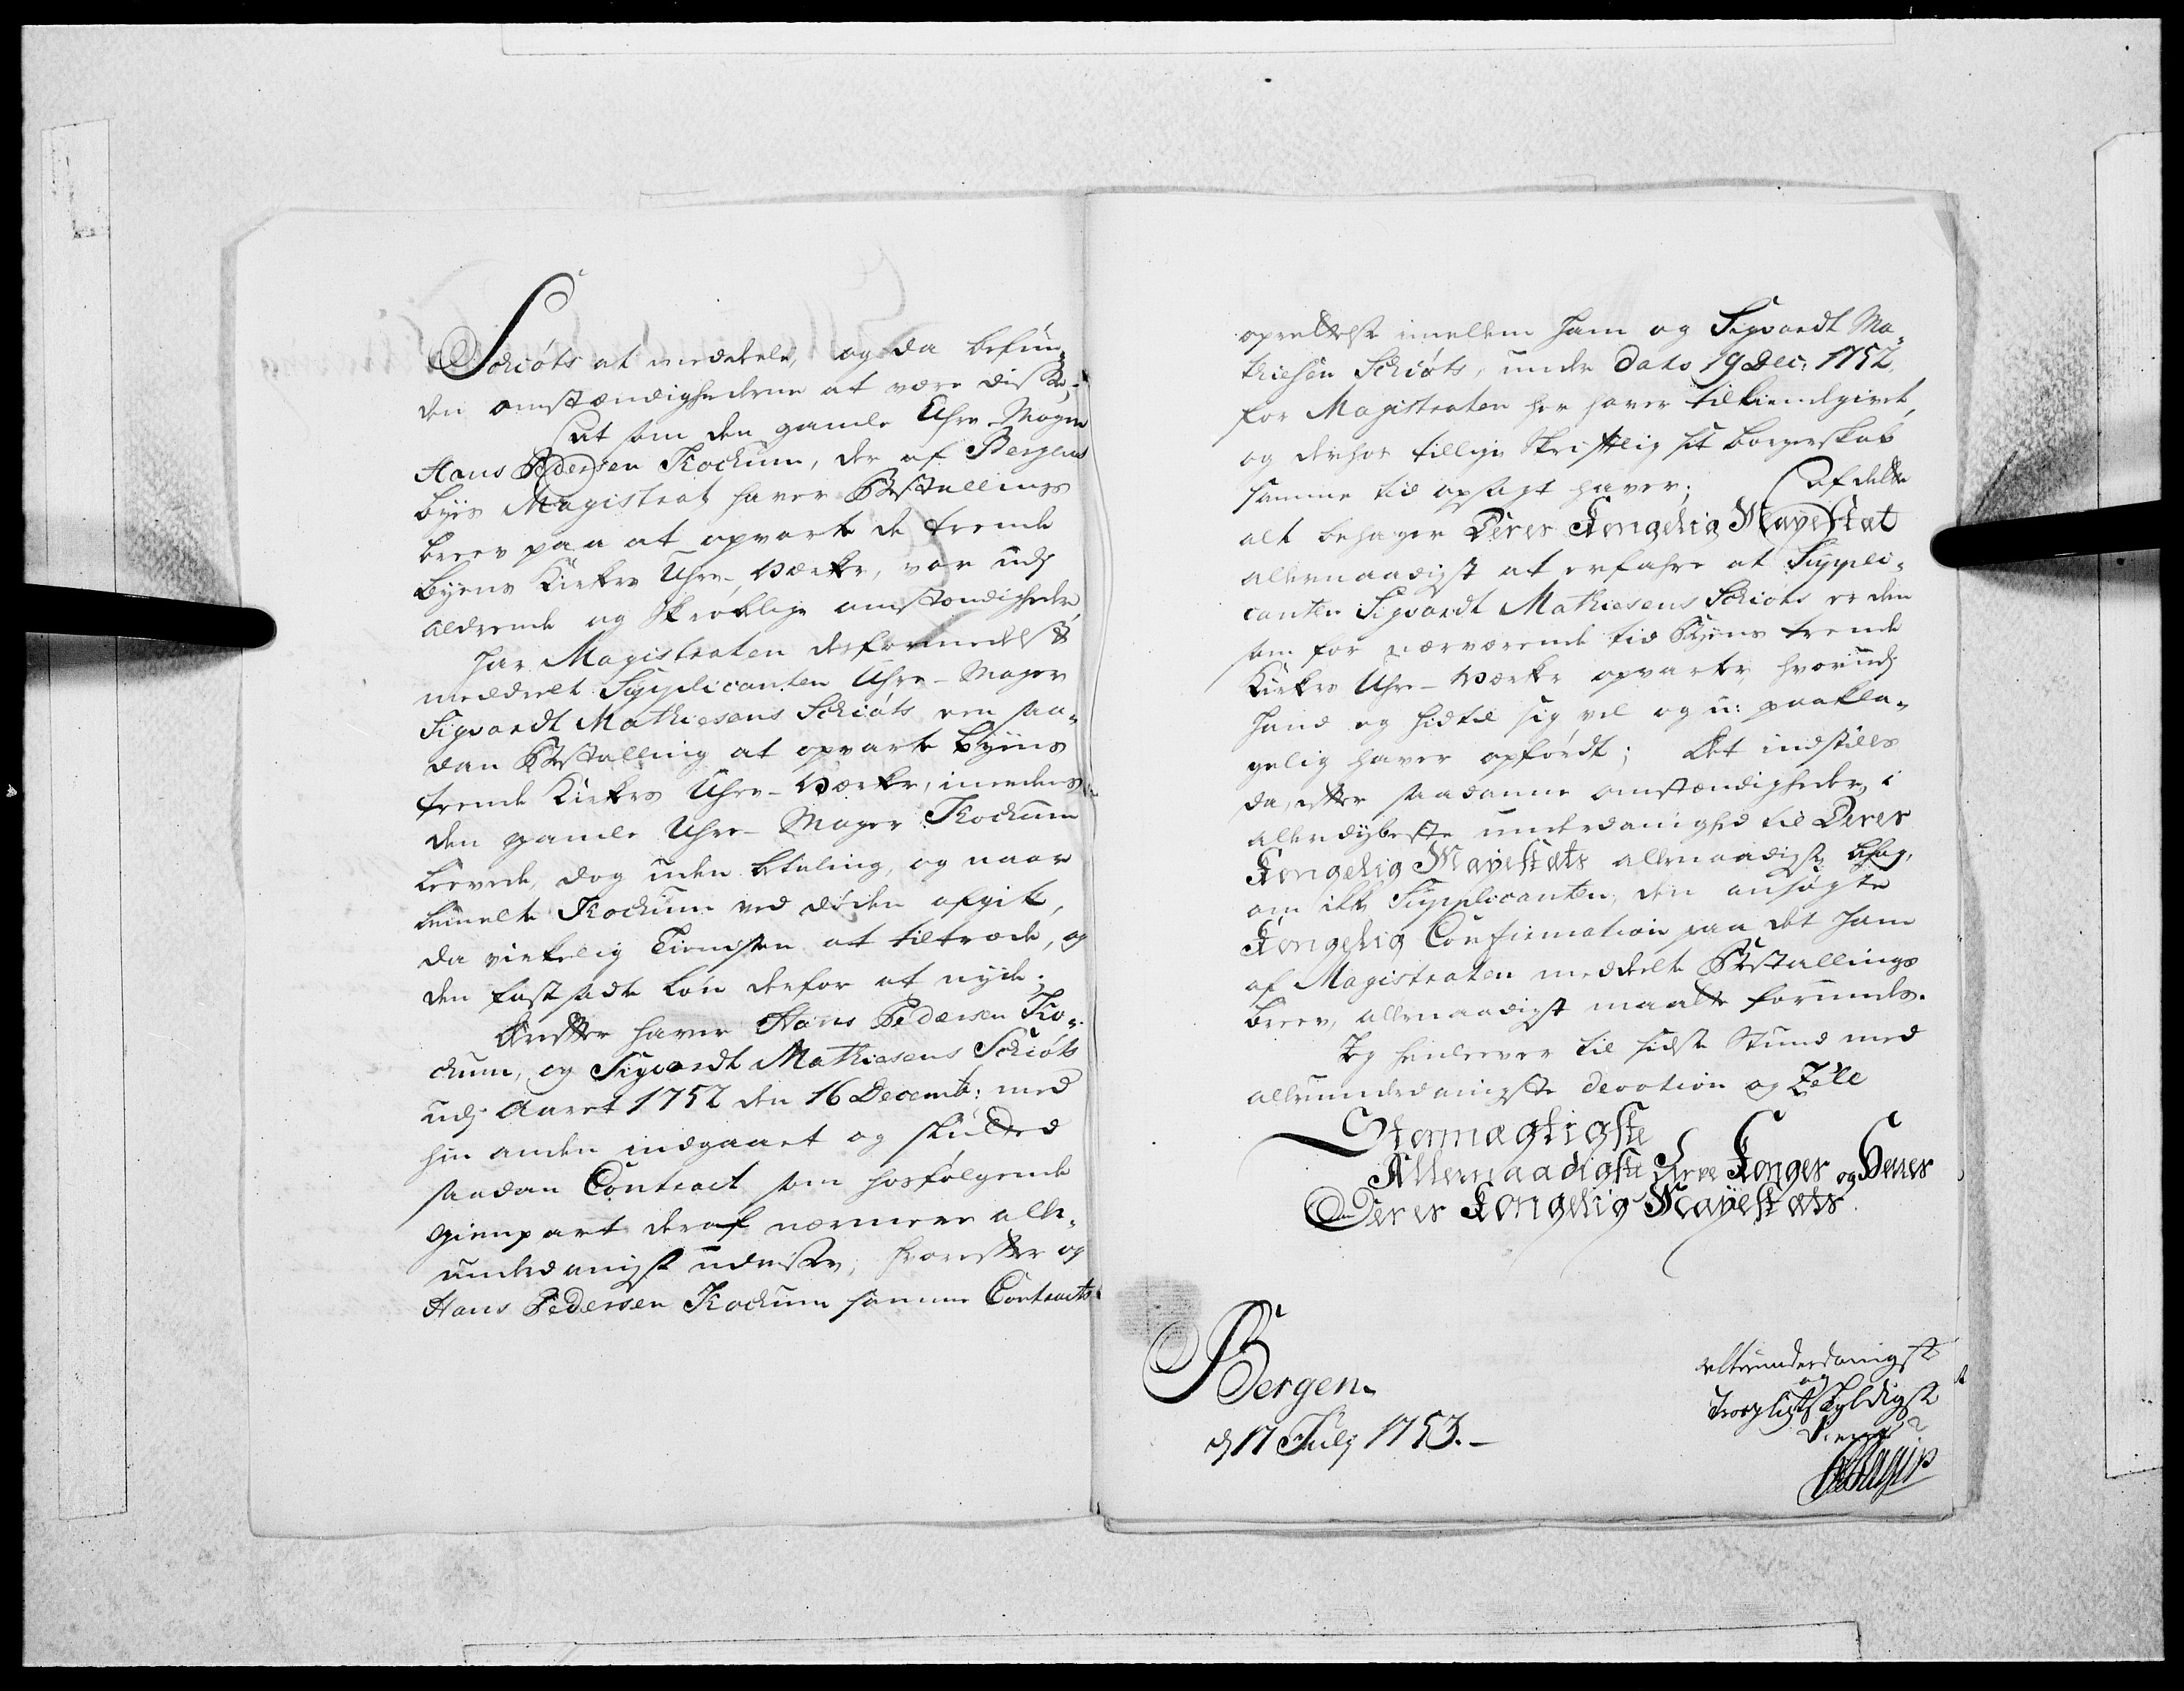 Schiøts at meddeele, og da befin-
den omstændighederne at være disse;
At som den gamle Uhre-Mager
Hans Pedersen Kochum, der af Bergens
byes Magistrat haver Bestallings
breev paa at opvarte de trende
byens Kirkers Uhre-Værker, var udj
aldrende og skrøbelige omstændigheder,
har Magistraten derformedelst
meddeelt Supplicanten Uhre-Mager
Sigvardt Mathiesens Schiøts een saa-
dan Bestalling at opvarte byens
trende Kirkers Uhre-Værker, imedens
den gamle Uhre-Mager Kochum
leevede, dog uden betaling, og naar
bemelte Kochum ved døden afgik,
da virkelig Tienisten at tiltræde, og
den fastsadte Løn derfor at nyde;
Derefter haver Hans Pedersen Ko-
chum, og Sigvardt Mathiesens Schiøts
udj Aaret 1752 den 16 Decembr: med
hin anden indgaaet og sluttet
saadan Contract som hosfølgende
gienpart deraf nærmere aller-
underdanigst udviser, hvorefter og
Hans Pedersen Kochum samme Contracts
oprettelse imellem ham og Sigvardt Ma-
thiesen Schiøts, under dato 19 Dec: 1752
for Magistraten her haver tilkiendegivet,
og derhos tillige skriftlig sit borgerskab
samme tid opsagt haver; Af dette
alt behager Deres Kongelig Mayestæt
allernaadigst at erfahre at Suppli-
canten Sigvardt Mathiesens Schiøts er den
som for nærværende tid Byens trende
Kirkers Uhre-Værker opvarter, hvorudj
hand og hidtil sig vel og u-paakla-
gelig haver opførdt; Det indstilles
da, efter saadanne omstændigheder, i
allerdybeste underdanighed til Deres
Kongelig Mayestæts allernaadigste behag,
om ikke Supplicanten, den ansøgte
Kongelig Confirmation paa det ham
af Magistraten meddeelte Bestallings
breev, allernaadigst maatte forundes.
Jeg henleever til sidste Stund med
allerunderdanigste devotion og Zele
Stormægtigste
Allernaadigste Arve Konges og Herres
Deres Kongelig Mayestæts
Bergen
d 17 Julj 1753.
allerunderdanigst
og
troepligtskyldigst
tiener